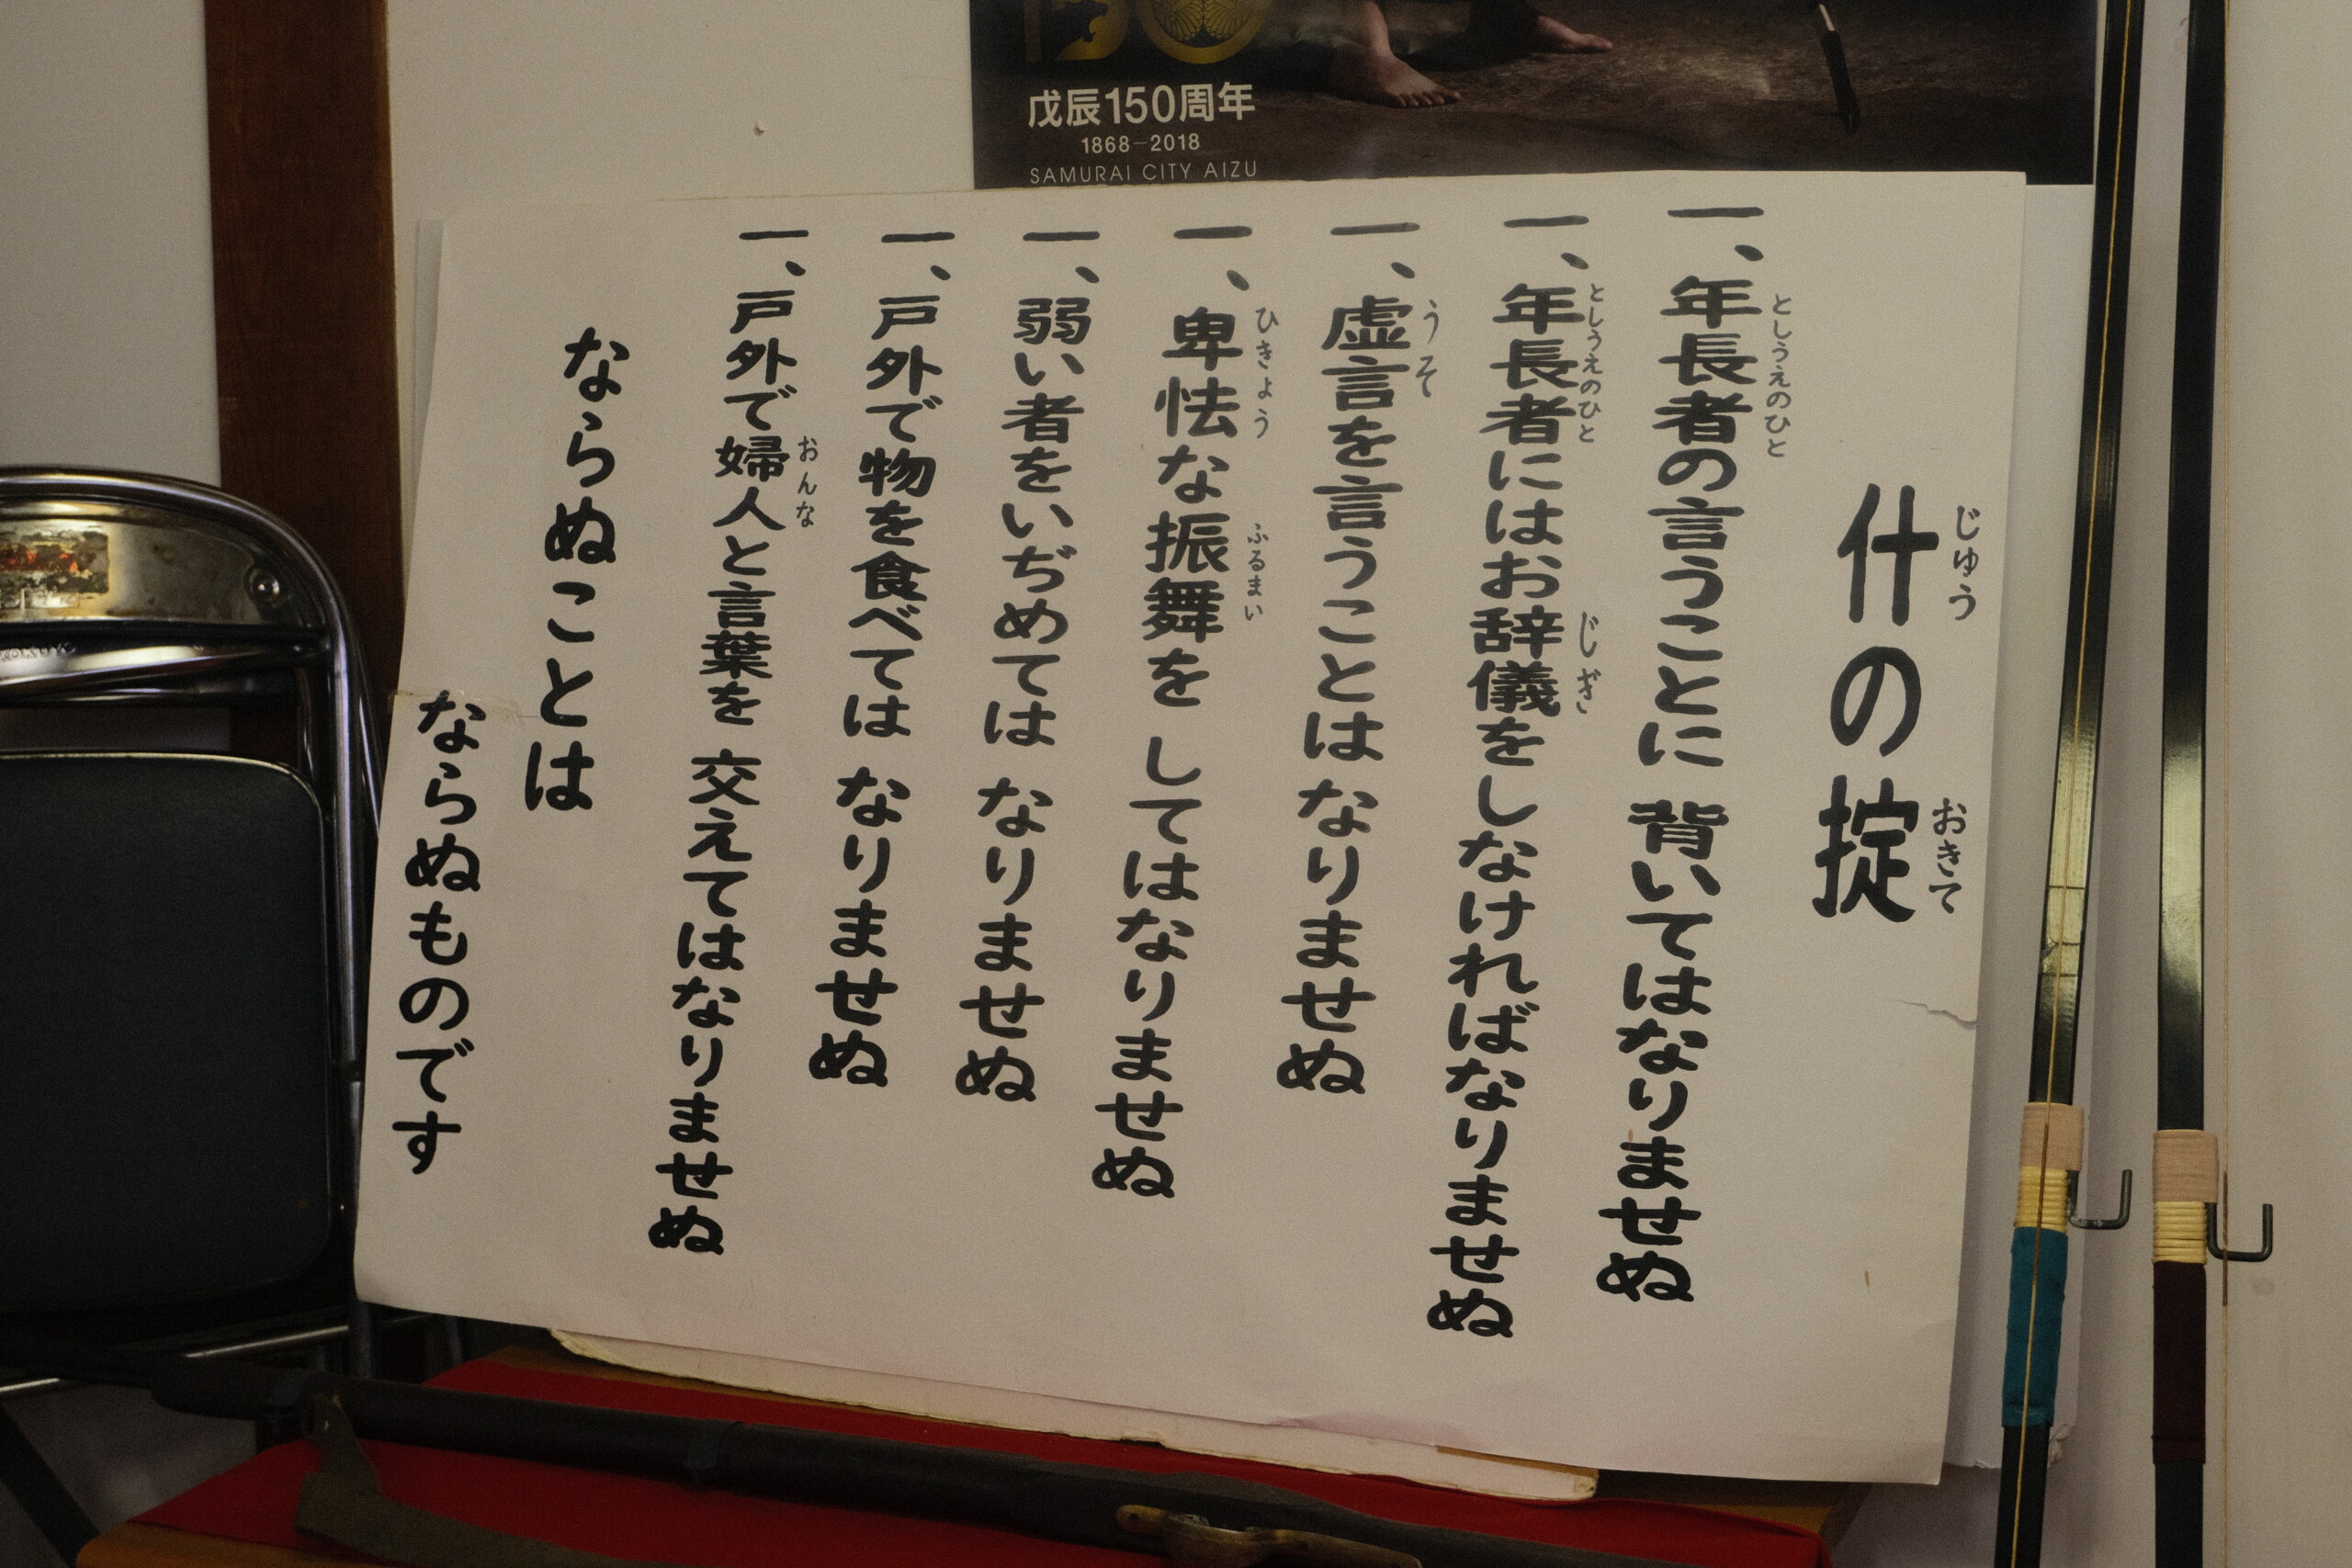 戊辰150周年
1868-2018
SAMURAI CITY AIZU
じゅう おきて
什の掟
としうえのひと
一、年長者の言うことに 背いてはなりませぬ
としうえのひと じぎ
一、年長者にはお辞儀をしなければなりませぬ
うそ
一、虚言を言うことは なりませぬ
ひきょう ふるまい
一、卑怯な振舞を してはなりませぬ
一、弱い者をいぢめては なりませぬ
一、戸外で物を食べては なりませぬ
おんな
一、戸外で婦人と言葉を 交えてはなりませぬ
ならぬことは
ならぬものです